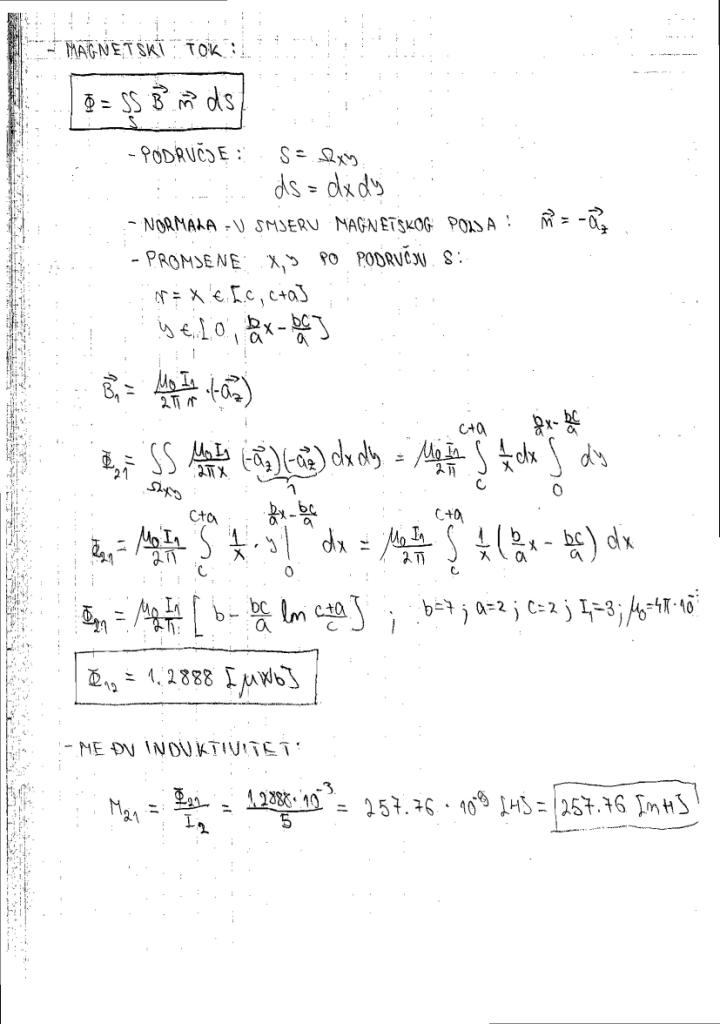 - MAGNETSKI TOK:
Φ = ∬_S B⃗ n⃗ dS
- PODRUČJE: S = Ωxy
dS = dxdy
- NORMALA - U SMJERU MAGNETSKOG POLJA: n⃗ = -a⃗z
- PROMJENE x,y PO PODRUČJU S:
r = x ∈ [c, c+a]
y ∈ [0, b/a x - bc/a]
B⃗₁ = μ₀I₁/2πr · (-a⃗z)
Φ₂₁ = ∬_Ωxy μ₀I₁/2πx (-a⃗z)(-a⃗z) dxdy = μ₀I₁/2π ∫_c^{c+a} 1/x dx ∫_0^{b/a x - bc/a} dy
1
Φ₂₁ = μ₀I₁/2π ∫_c^{c+a} 1/x · y |_0^{b/a x - bc/a} dx = μ₀I₁/2π ∫_c^{c+a} 1/x (b/a x - bc/a) dx
Φ₂₁ = μ₀I₁/2π [b - bc/a ln c+a/c] ; b=7; a=2; c=2; I₁=3; μ₀=4π·10⁻
Φ₁₂ = 1.2888 [μWb]
- MEĐUINDUKTIVITET:
M₂₁ = Φ₂₁/I₂ = 1.2888·10⁻³/5 = 257.76 · 10⁻⁹ [H] = 257.76 [nH]